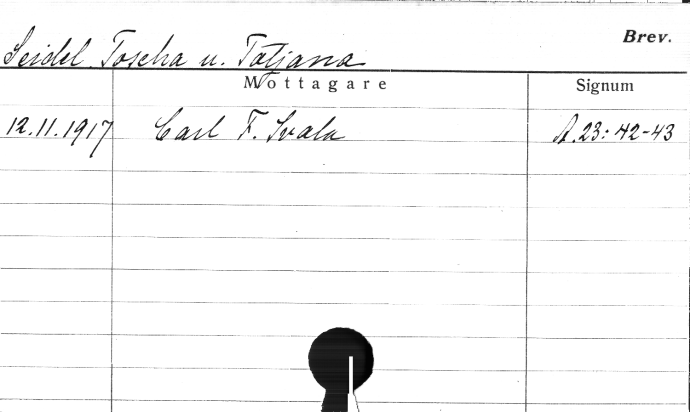 Brev.
Seidel Toscha u. Tatjana
Mottagare Signum
12.11.1917 Carl F. Svala A.23:42-43